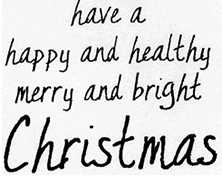 have a
happy and healthy
merry and bright
Christmas